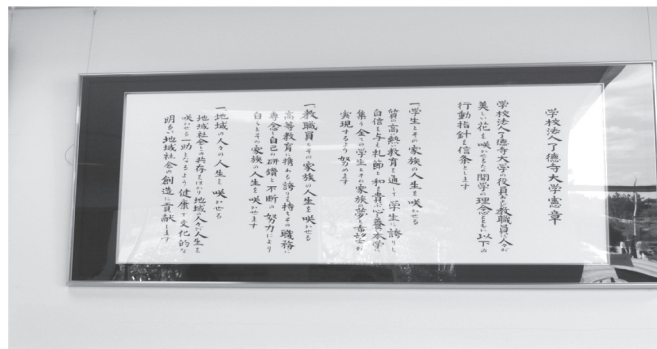 学校法人了徳寺大学憲章
学校法人了徳寺大学の役員及び教職員は人々が
美しい花を咲かせるため開学の理念をもとに以下の
行動指針を信条とします
一学生とその家族の人生を咲かせる
質の高い熱い教育を通して学生に誇りと
自信を与え礼節と和を貴ぶ心を養い本学に
集う全ての学生とその家族の夢と喜びが
実現するよう努めます
一教職員とその家族の人生を咲かせる
高等教育に携わる誇りを持ちその職務に
専念し自己の研鑽と不断の努力により
自らとその家族の人生を咲かせます
一地域の人々の人生を咲かせる
地域社会との共存をはかり地域の人々の人生を
咲かせる一助となるよう健康で文化的な
明るい地域社会の創造に貢献します